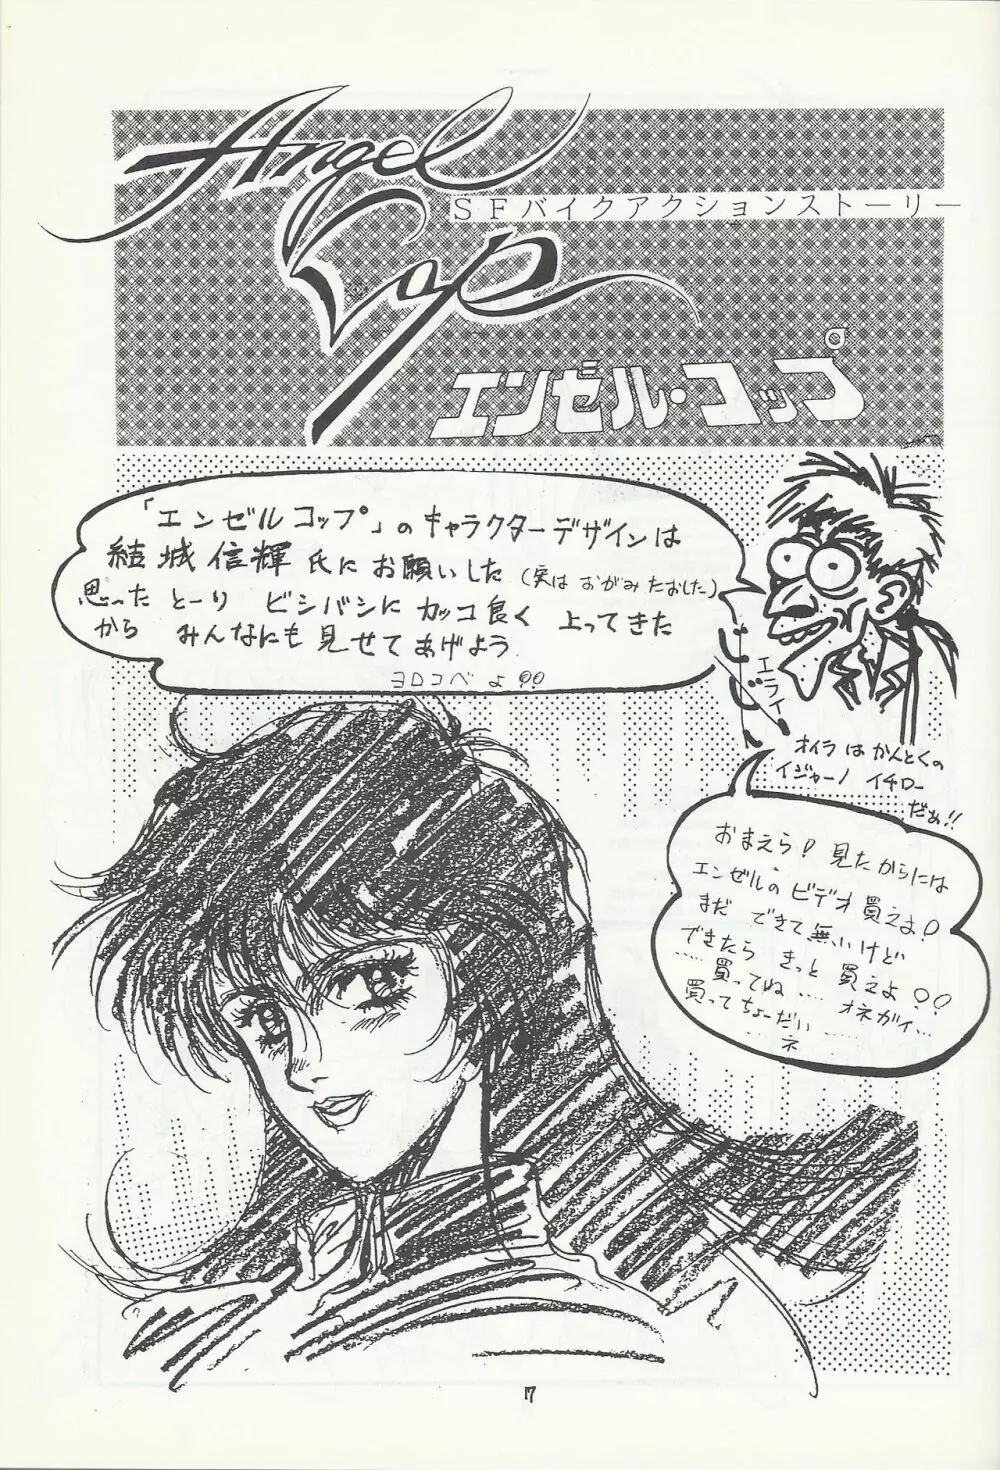 Angel
Cop
SFバイクアクションストーリー
エンゼル・コップ
「エンゼルコップ」のキャラクターデザインは
結城信輝氏にお願いした(実はおがみたおした)
思ったとーり ビシバシにカッコ良く 上ってきた
から みんなにも見せてあげよう
ヨロコベよ!!
エライ
オイラはかんとくの
イジャーノ イチロー
だぁ!!
おまえら! 見たからには
エンゼルのビデオ買えよ!
まだ できて無いけど
できたら きっと 買えよ!!
……買ってね…… オネガイ…
買ってちょーだい……
…ネ
7